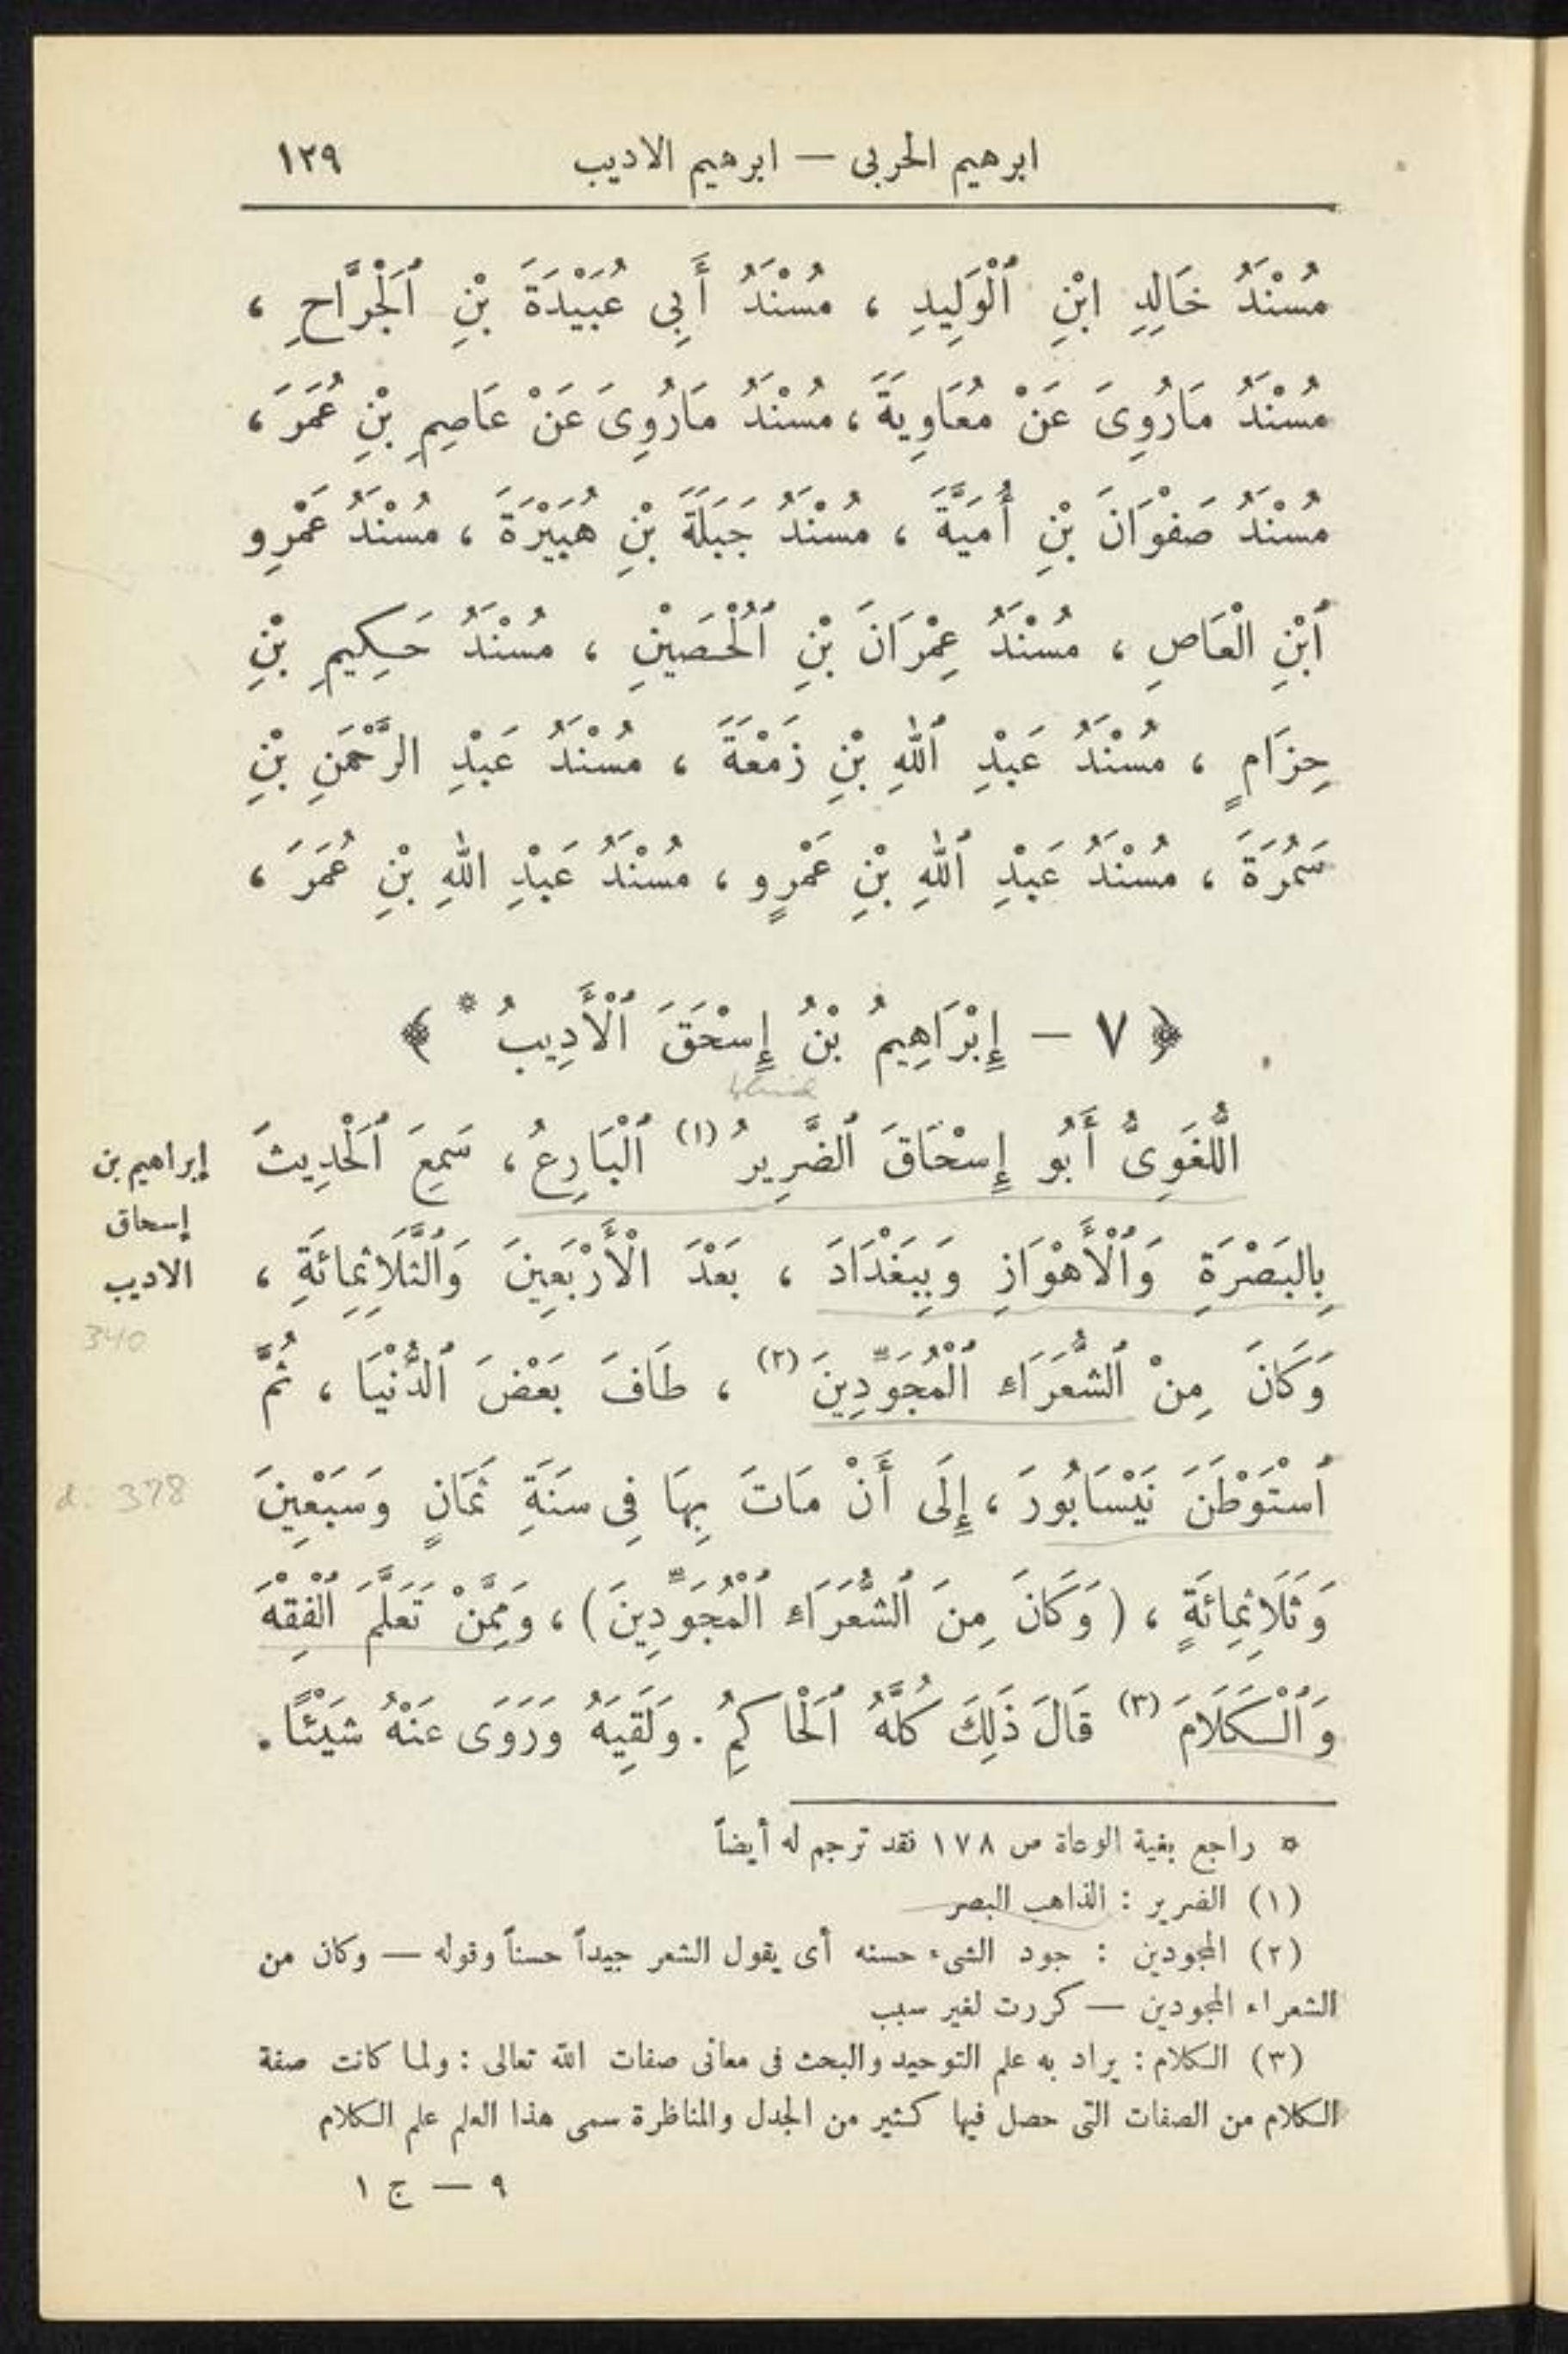 ابرهيم الحربى — ابرهيم الاديب ١٢٩
مُسْنَدُ خَالِدِ ابْنِ ٱلْوَلِيدِ ، مُسْنَدُ أَبِي عُبَيْدَةَ بْنِ ٱلْجَرَّاحِ ،
مُسْنَدُ مَارُوِىَ عَنْ مُعَاوِيَةَ ، مُسْنَدُ مَارُوِىَ عَنْ عَاصِمِ بْنِ عُمَرَ ،
مُسْنَدُ صَفْوَانَ بْنِ أُمَيَّةَ ، مُسْنَدُ جَبَلَةَ بْنِ هُبَيْرَةَ ، مُسْنَدُ عَمْرِو
ٱبْنِ الْعَاصِ ، مُسْنَدُ عِمْرَانَ بْنِ ٱلْحُصَيْنِ ، مُسْنَدُ حَكِيمِ بْنِ
حِزَامٍ ، مُسْنَدُ عَبْدِ ٱللهِ بْنِ زَمْعَةَ ، مُسْنَدُ عَبْدِ الرَّحْمَنِ بْنِ
سَمُرَةَ ، مُسْنَدُ عَبْدِ ٱللهِ بْنِ عَمْرٍو ، مُسْنَدُ عَبْدِ اللهِ بْنِ عُمَرَ ،
﴿ ٧ — إِبْرَاهِيمُ بْنُ إِسْحَقَ ٱلْأَدِيبُ * ﴾
blind
اللُّغَوِىُّ أَبُو إِسْحَاقَ ٱلضَّرِيرُ (١) ٱلْبَارِعُ ، سَمِعَ ٱلْحَدِيثَ
بِالبَصْرَةِ وَٱلْأَهْوَازِ وَبِبَغْدَادَ ، بَعْدَ الْأَرْبَعِينَ وَٱلثَّلَاثِمِائَةِ ،
وَكَانَ مِنْ ٱلشُّعَرَاءِ ٱلْمُجَوِّدِينَ (٢) ، طَافَ بَعْضَ ٱلدُّنْيَا ، ثُمَّ
ٱسْتَوْطَنَ نَيْسَابُورَ ، إِلَى أَنْ مَاتَ بِهَا فِى سَنَةِ ثَمَانٍ وَسَبْعِينَ
وَثَلَاثِمِائَةٍ ، ( وَكَانَ مِنَ ٱلشُّعَرَاءِ ٱلْمُجَوِّدِينَ ) ، وَمِمَّنْ تَعَلَّمَ ٱلْفِقْهَ
وَٱلْكَلَامَ (٣) قَالَ ذَلِكَ كُلَّهُ ٱلْحَاكِمُ . وَلَقِيَهُ وَرَوَى عَنْهُ شَيْئًا .
إبراهيم بن
إسحاق
الاديب
340
d. 378
* راجع بغية الوعاة ص ١٧٨ فقد ترجم له أيضاً
(١) الضرير : الذاهب البصر
(٢) المجودين : جود الشىء حسنه أى يقول الشعر جيداً حسناً وقوله — وكان من
الشعراء المجودين — كررت لغير سبب
(٣) الكلام : يراد به علم التوحيد والبحث فى معانى صفات الله تعالى : ولما كانت صفة
الكلام من الصفات التى حصل فيها كثير من الجدل والمناظرة سمى هذا العلم علم الكلام
٩ — ج ١